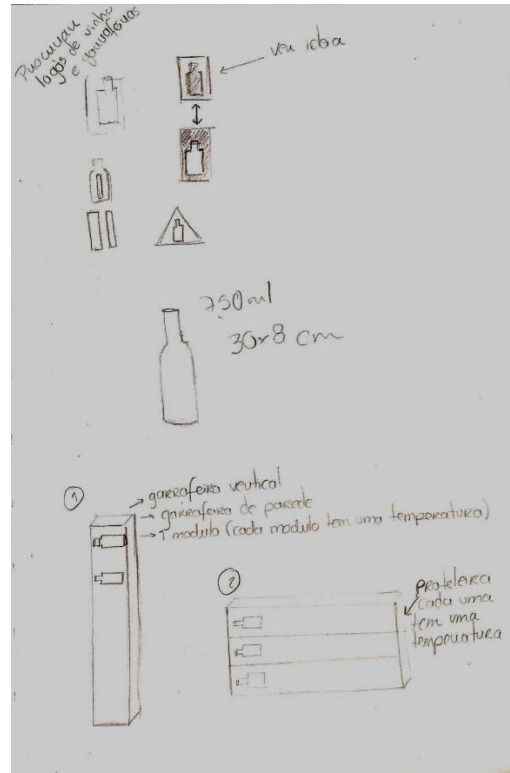 Procurar
logos de vinho
e garrafeiras
ver ideia
750ml
30x8 cm
1
garrafeira vertical
garrafeira de parede
1 modulo (cada modulo tem uma temperatura)
2
prateleira
cada uma
tem uma
temperatura